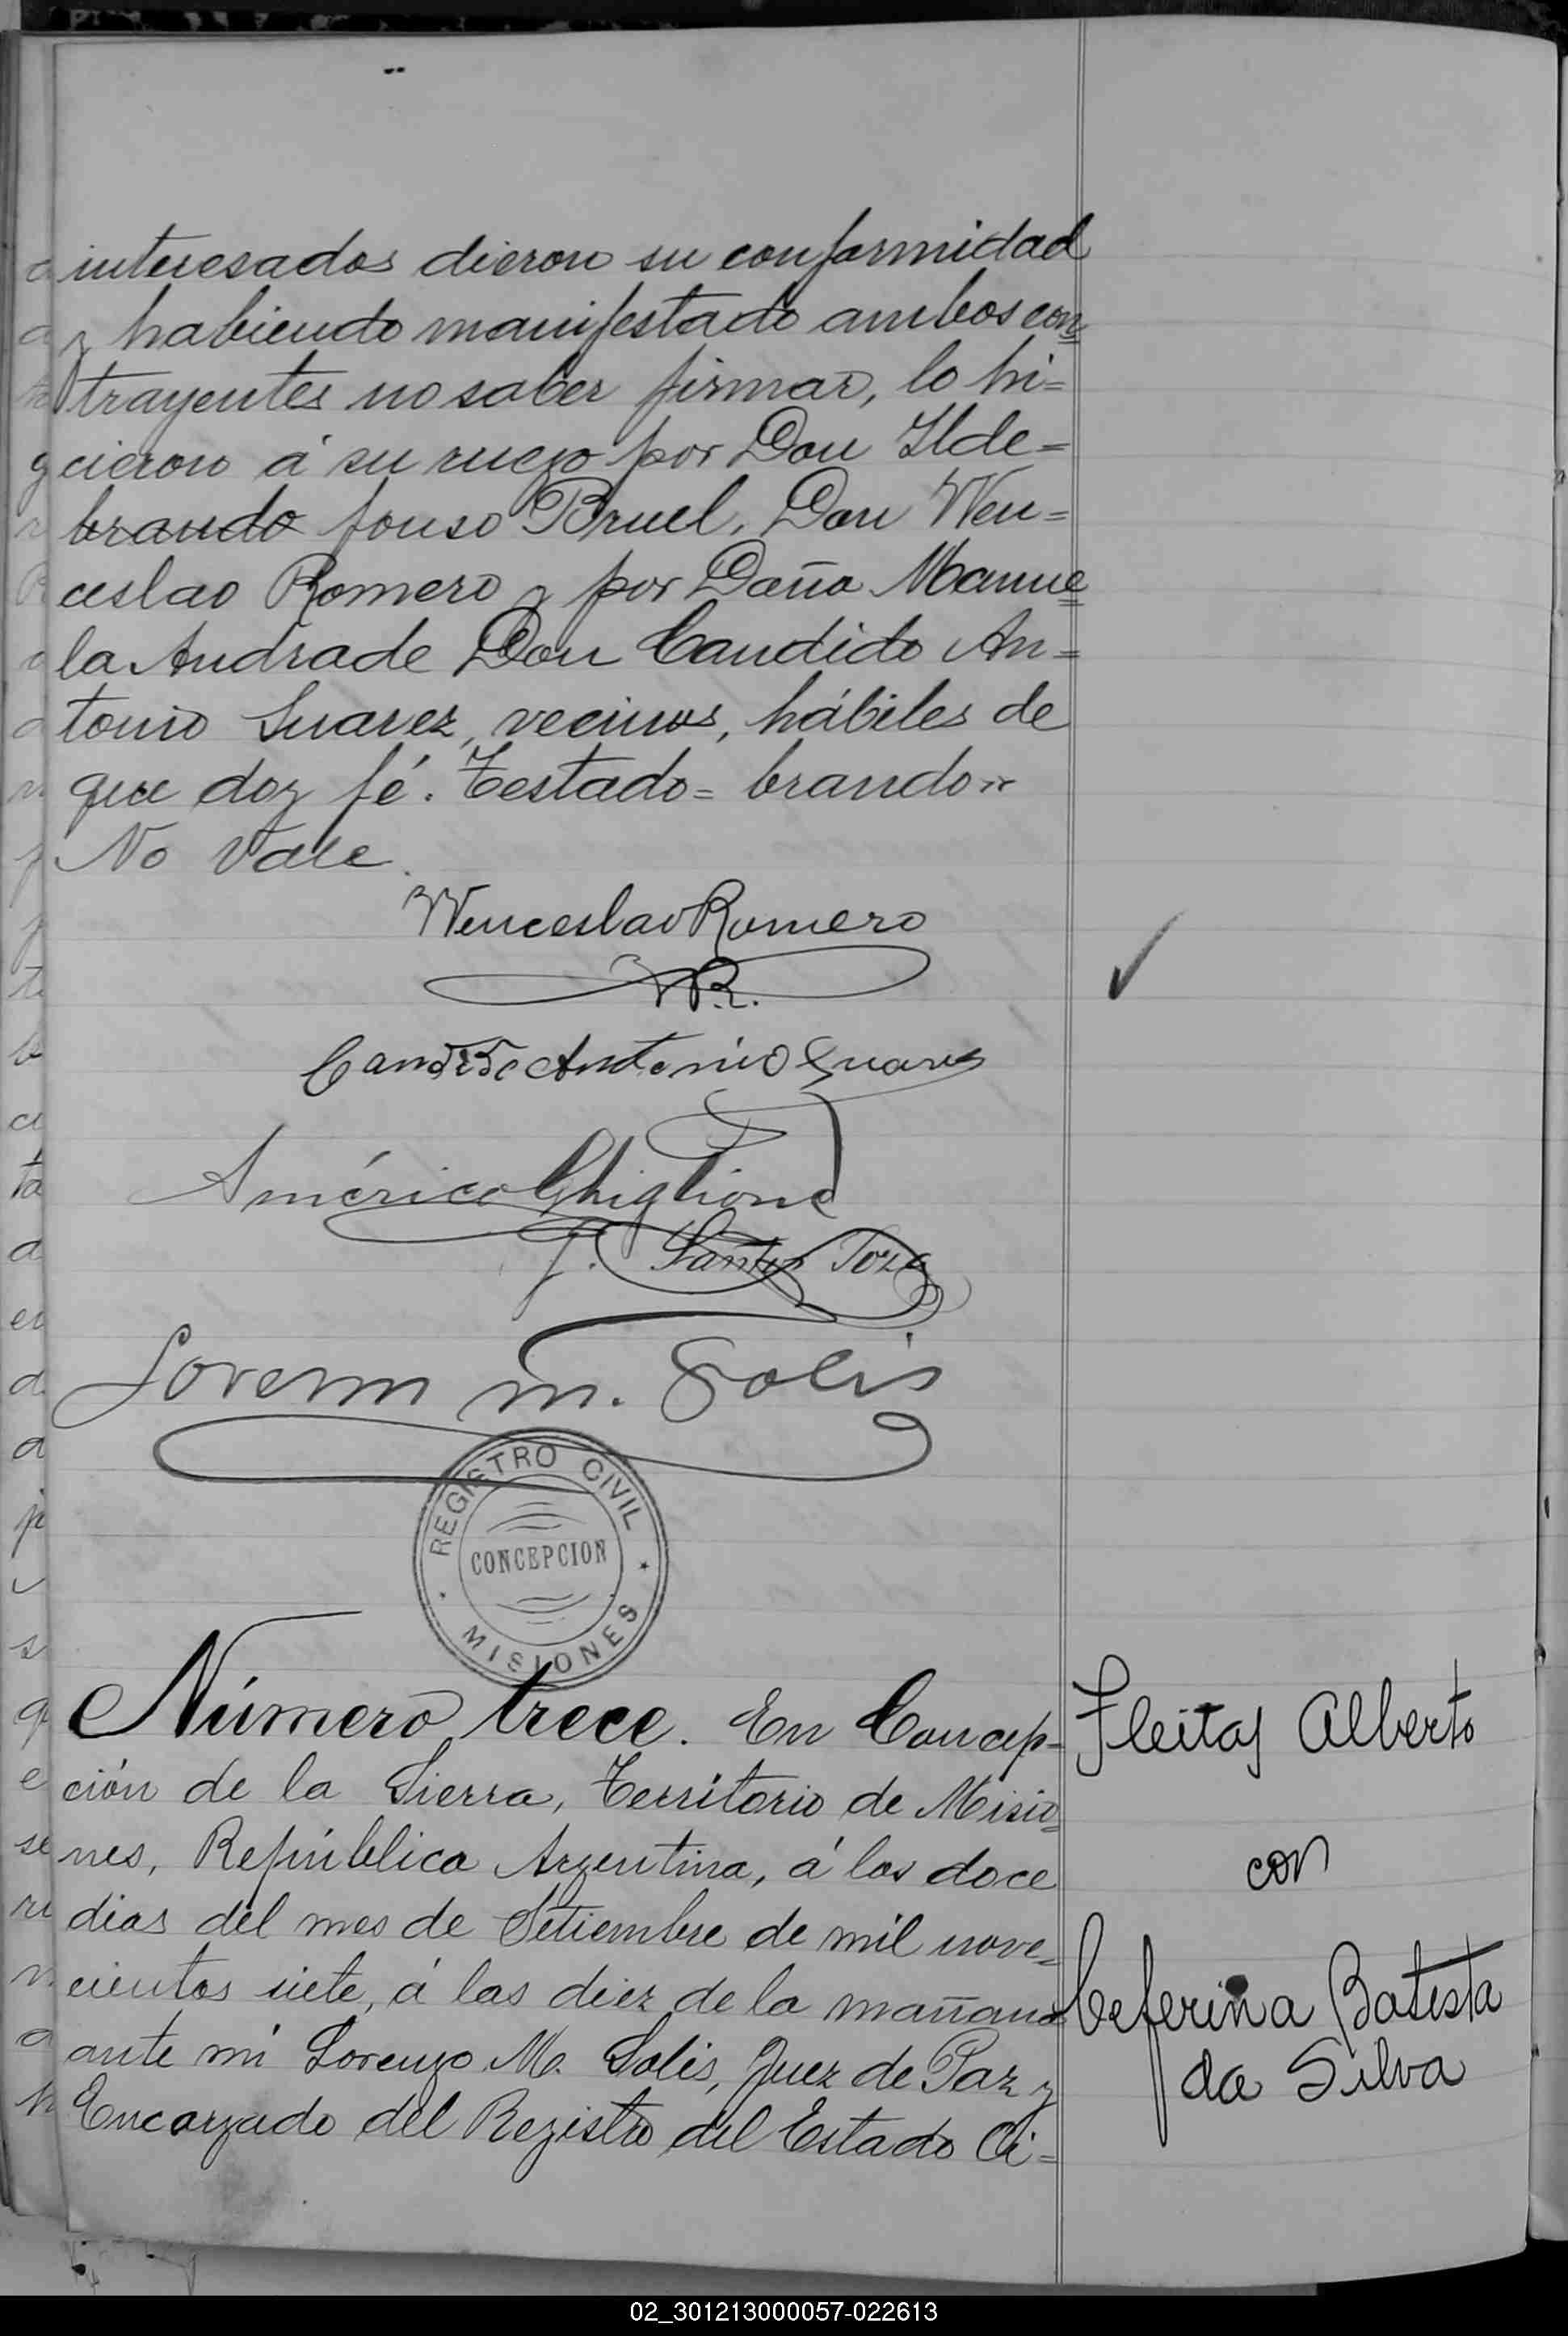 interesados dieron su conformidad
y habiendo manifestado ambos con=
trayentes no saber firmar, lo hi=
cieron á su ruego por Don Ilde=
brando fonso Bruel, Don Wen=
ceslao Romero y por Doña Manue=
la Andrade Don Candido An=
tonio Suarez, vecinos, hábiles de
que doy fé. Testado = brando =
No Vale.
Wenceslao Romero
WR.
Candido Antonio Suares
Américo Ghiglione
J. Santos
Lorenzo M. Solis
REGISTRO CIVIL
CONCEPCION
MISIONES
Número trece. En Concep=
ción de la Sierra, Territorio de Misio=
nes, República Argentina, á los doce
dias del mes de Setiembre de mil nove=
cientos siete, á las diez de la mañana
ante mi Lorenzo M. Solis, Juez de Paz y
Encargado del Registro del Estado Ci=
Fleitas Alberto
con
Ceferina Batista
da Silva
02_301213000057-022613